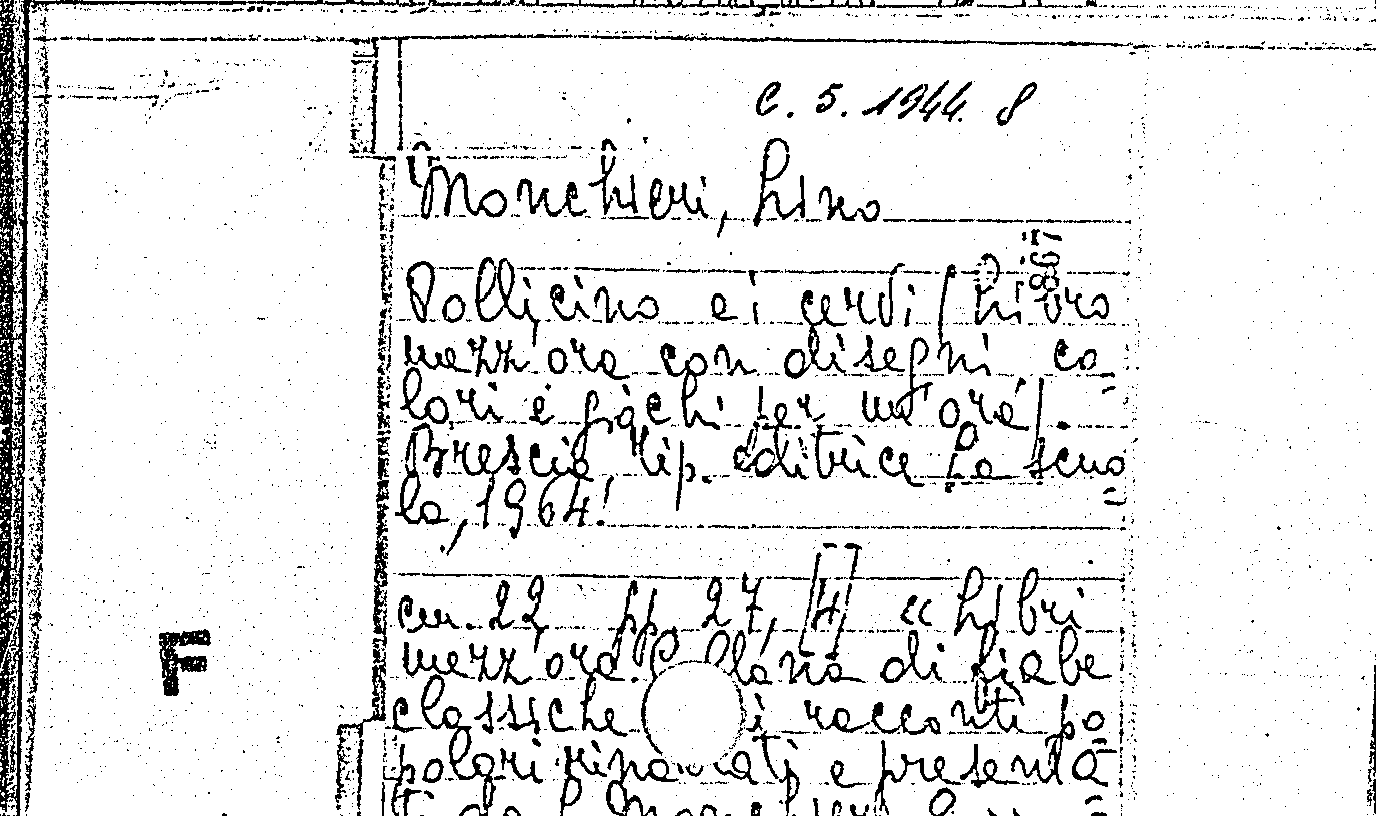 C. 5. 1944. 8
Monchieri, Lino
867
Pollicino e i cervi (Libro
mezz'ora con disegni, co=
lori e giochi per un'ora).
Brescia, tip. editrice La scuo=
la, 1964.
cm. 22, pp. 27, [4] « Libri
mezz'ora. Collana di fiabe
classiche di racconti po=
polari rinarrati e presenta=
ti da L. Monchieri
F